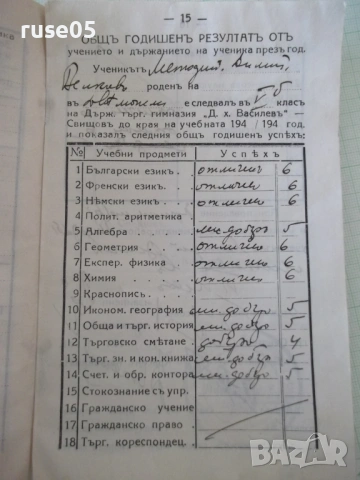 ruse05
— 15 —
ОБЩЪ ГОДИШЕНЪ РЕЗУЛТАТЪ ОТЪ
учението и държанието на ученика презъ год.
Ученикътъ Методий Димит.
роденъ на
въ е следвалъ въ V б класъ
на Държ. търг. гимназия „Д. х. Василевъ“ —
Свищовъ до края на учебната 194 /194 год.
и показалъ следния общъ годишенъ успѣхъ:
№ Учебни предмети Успѣхъ
1 Български езикъ . отличенъ 6
2 Френски езикъ . . отличен 6
3 Нѣмски езикъ . . . отличен 6
4 Полит. аритметика .
5 Алгебра . . . . мн. добъръ 5
6 Геометрия . . . . отличен 6
7 Експер. физика . отличен 6
8 Химия . . . . . отличен 6
9 Краснописъ . . .
10 Иконом. география мн. добъръ 5
11 Обща и търг. история мн. добъръ 5
12 Търговско смѣтане . добъръ 4
13 Търг. зн. и кон. книжа мн. добъръ 5
14 Счет. и обр. контора мн. добъръ 5
15 Стокознание съ упр.
16 Гражданско учение
17 Гражданско право .
18 Търг. кореспондец.
bazar.bg